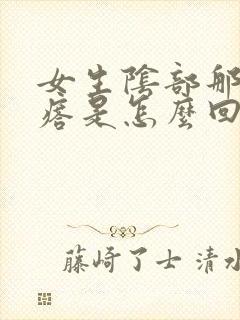 女生陰部那
痞是怎麼回
藤崎了士 清水